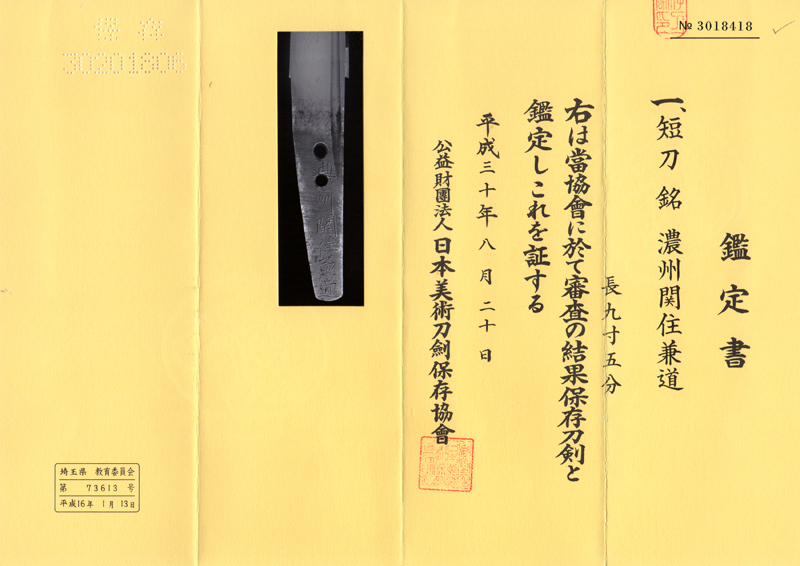 № 3018418
鑑定書
一、短刀 銘 濃州関住兼道
長九寸五分
右は當協會に於て審査の結果保存刀剣と
鑑定しこれを証する
平成三十年八月二十日
公益財團法人日本美術刀劍保存協會
濃州関住兼道
保存
30201806
埼玉県 教育委員会
第 73613 号
平成16年 1月 13日